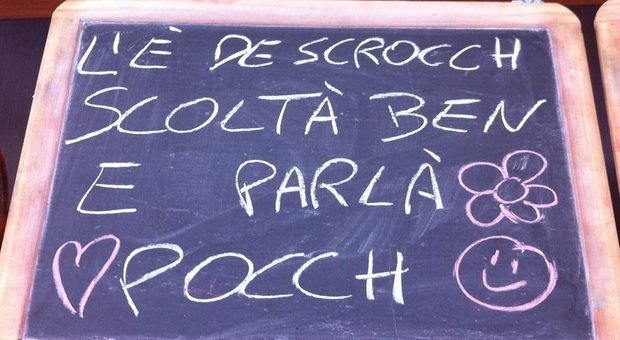 L'È DE SCROCCH
SCOLTÀ BEN
E PARLÀ
POCCH